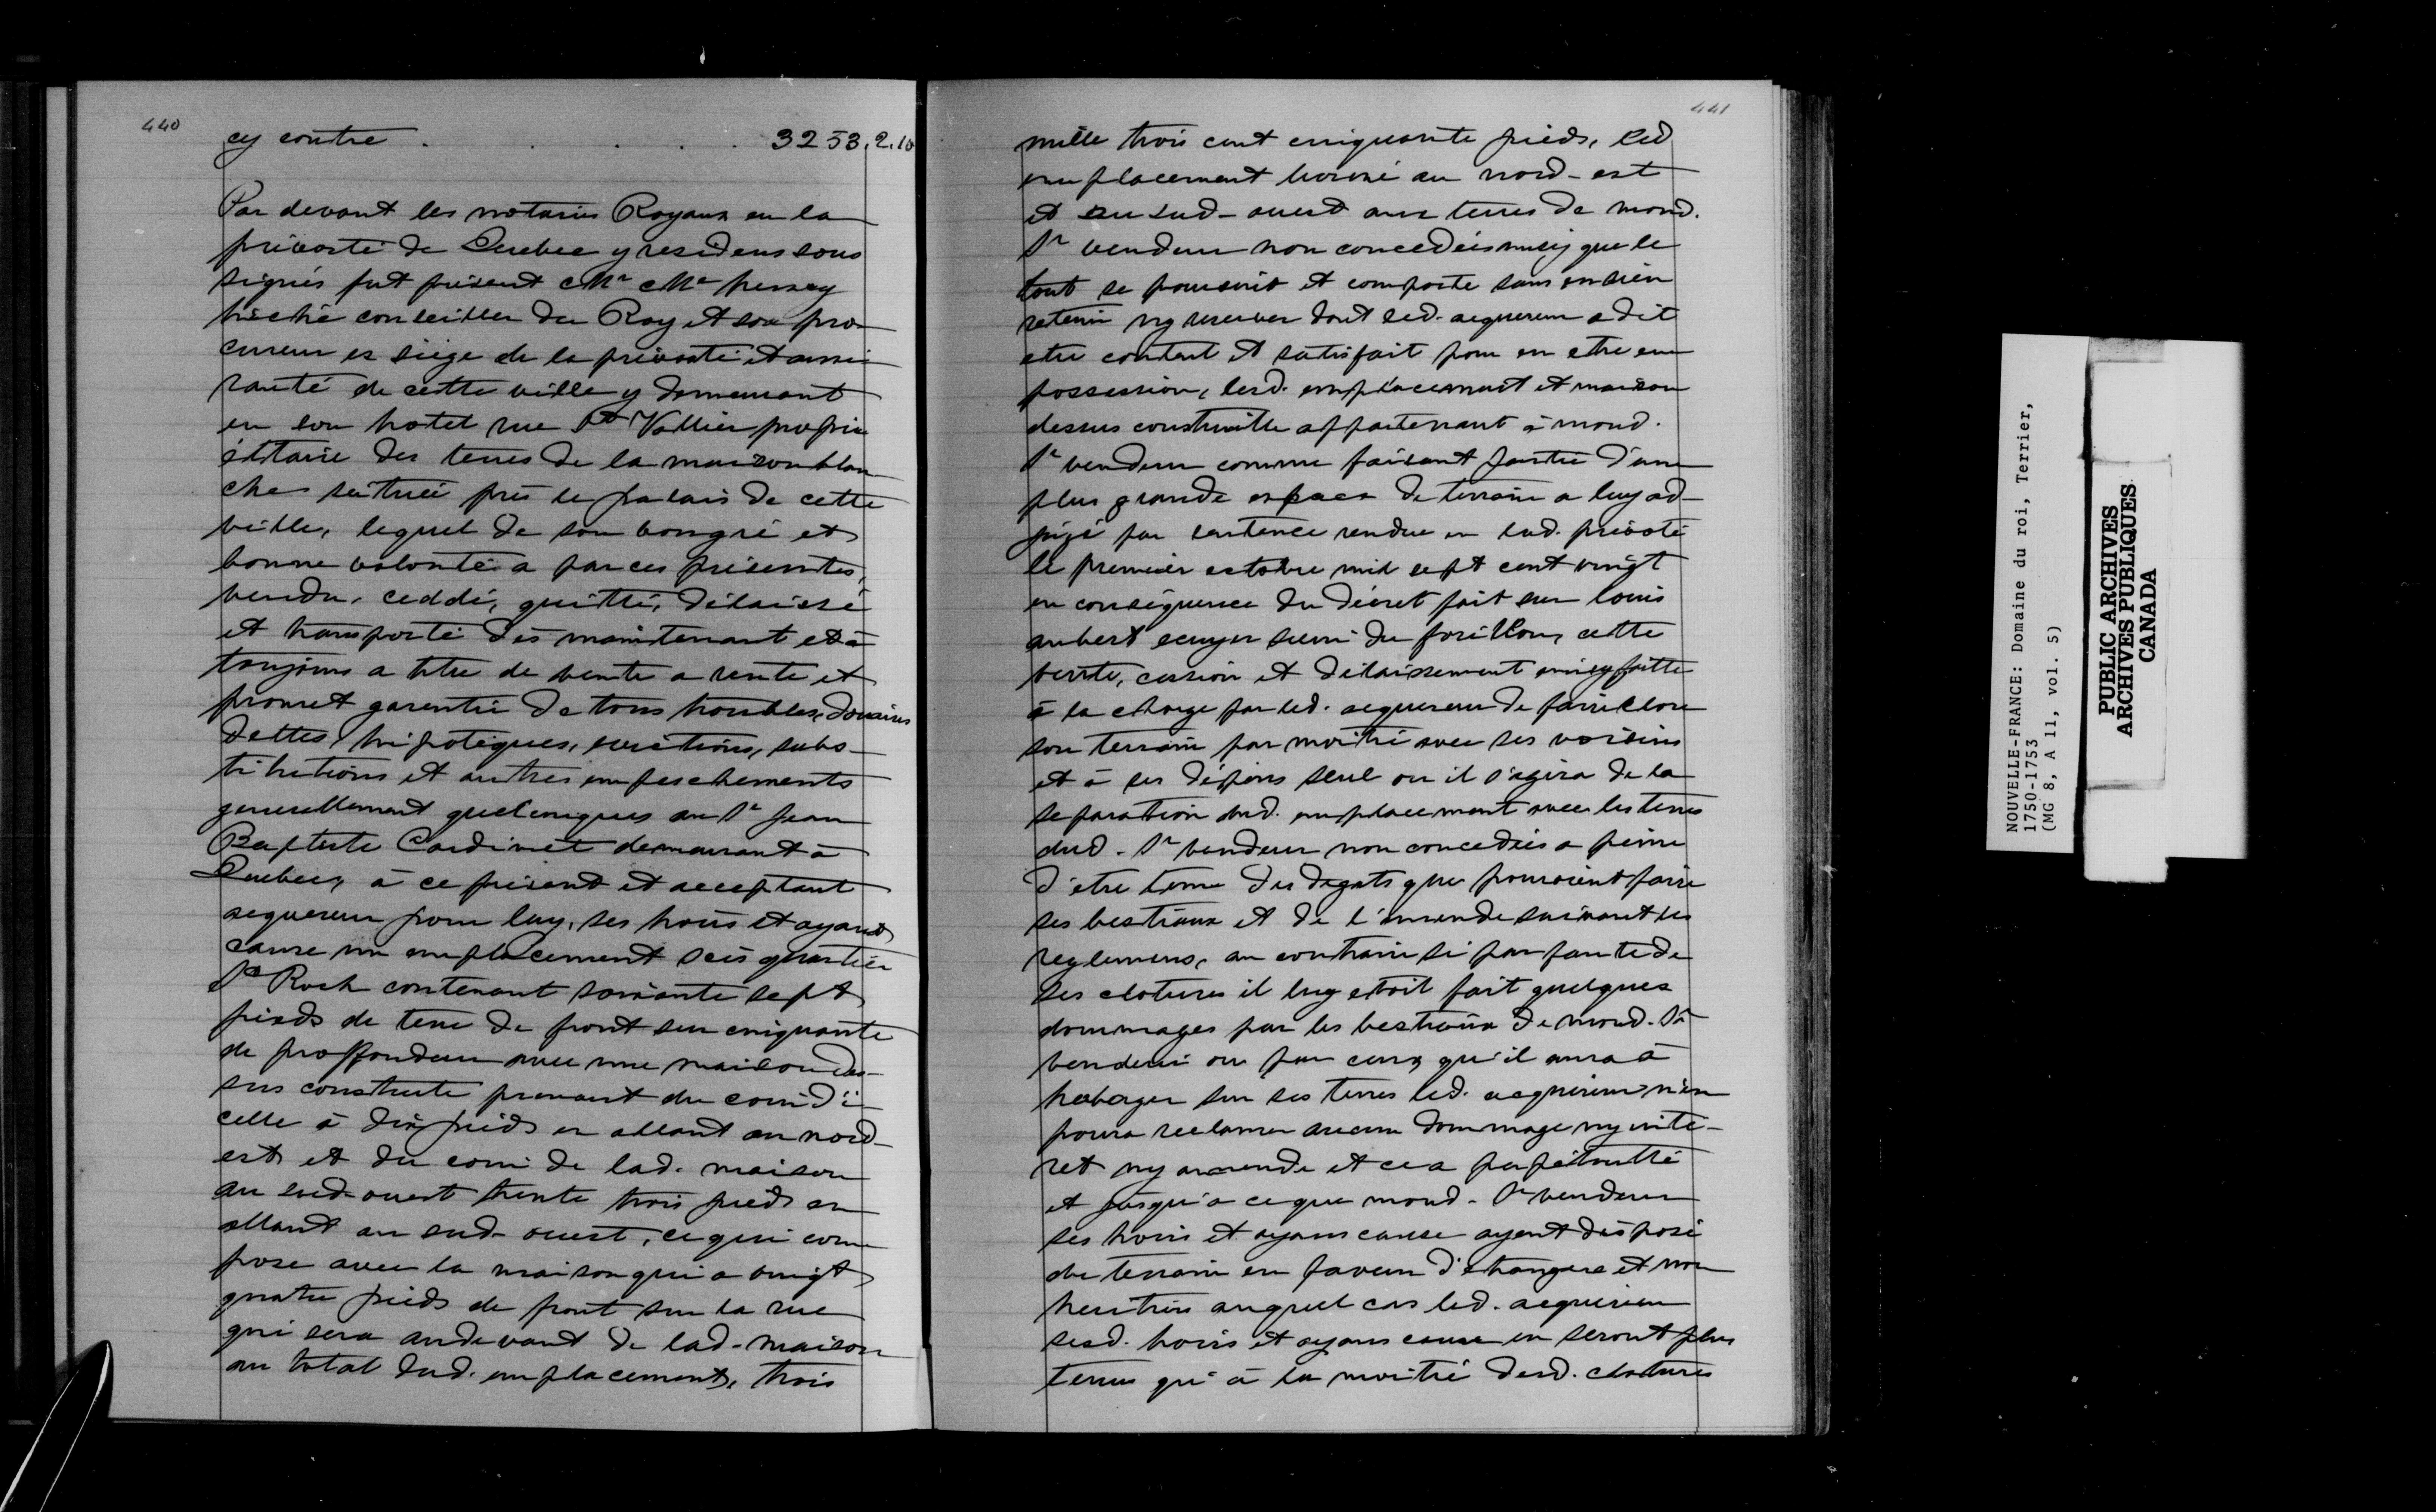 440
cy contre . . . . . 3253.2.10
Par devant les notaires Royaux en la
prévosté de Quebec y residens sous
signés fut présent Mr Me henry
hiché conseiller du Roy et son pro
cureur es siège de la prévosté et ami
rauté de cette ville y demeurant
en son hotel rue St Vallier propri
étaire des terres de la maison blan
che scituée près le palais de cette
ville, lequel de son bongré et
bonne volonté a par ces présentes,
vendu, ceddé, quitté, délaissé
et transporté dès maintenant et à
toujours a titre de vente a rente et
promet garentir de tous troubles, douaires
dettes, hipoteques, evictions, subs-
titutions et autres empeschements
generallement quelconques au Sr Jean
Baptiste Cardinet demeurant à
Quebec, à ce présent et acceptant
aquereur pour luy, ses hoirs et ayant
cause un emplacement scis quartier
St Roch contenant soixante sept
pieds de terre de front sur cinquante
de proffondeur avec une maison des-
sus construite prenant du coin d'i-
celle à dix pieds en allant au nord-
est et du coin de lad. maison
au sud-ouest trente trois pieds en
allant au sud-ouest, ce qui com
pose avec la maison qui a vingt
quatre pieds de front sur la rue
qui sera audevant de lad. maison
au total dud. emplacement, trois
441
mille trois cent cinquante pieds, led
emplacement borné au nord-est
et au sud-ouest aux terres de mond.
Sr vendeur non concedéés ainsy que le
tout se poursuit et comporte sans en rien
retenir ny reserver dont led. aquereur a dit
etre content et satisfait pour en etre en
possession, lesd. emplacement et maison
dessus construitte appartenant à mond.
Sr vendeur comme faisant partie d'une
plus grande espace de terrain a luy ad-
jugé par sentence rendue en lad. prévoté
le premier octobre mil sept cent vingt
en conséquence du décret fait sur louis
aubert ecuyer sieur du forillon, cette
vente, cession et délaissement ainsy faitte
à la charge par led. aquereur de faire clore
son terrain par moitié avec ses voisins
et à ses dépens seul ou il s'agira de la
separation dud. emplacement avec les terres
dud. Sr vendeur non concedées a peine
d'etre tenu des degats que pouroient faire
ses bestiaux et de l'amende suivant les
reglemens, au contraire si par faute de
ses clotures il luy etoit fait quelques
dommages par les bestiaux de mond. Sr
vendeur ou par ceux qu'il aura à
heberger sur ses terres led. aquereur n'en
poura reclamer aucun dommage ny inté-
ret ny amende et ce a perpétuitté
et jusqu'a ce que mond. Sr vendeur
ses hoirs et ayans cause ayent disposé
du terrain en faveur d'etrangers et non
heritiers auquel cas led. aquereur
sesd. hoirs et ayans cause en seront plus
tenus qu'à la moitié desd. clotures
NOUVELLE-FRANCE: Domaine du roi, Terrier,
1750-1753
(MG 8, A 11, vol. 5)
PUBLIC ARCHIVES
ARCHIVES PUBLIQUES
CANADA